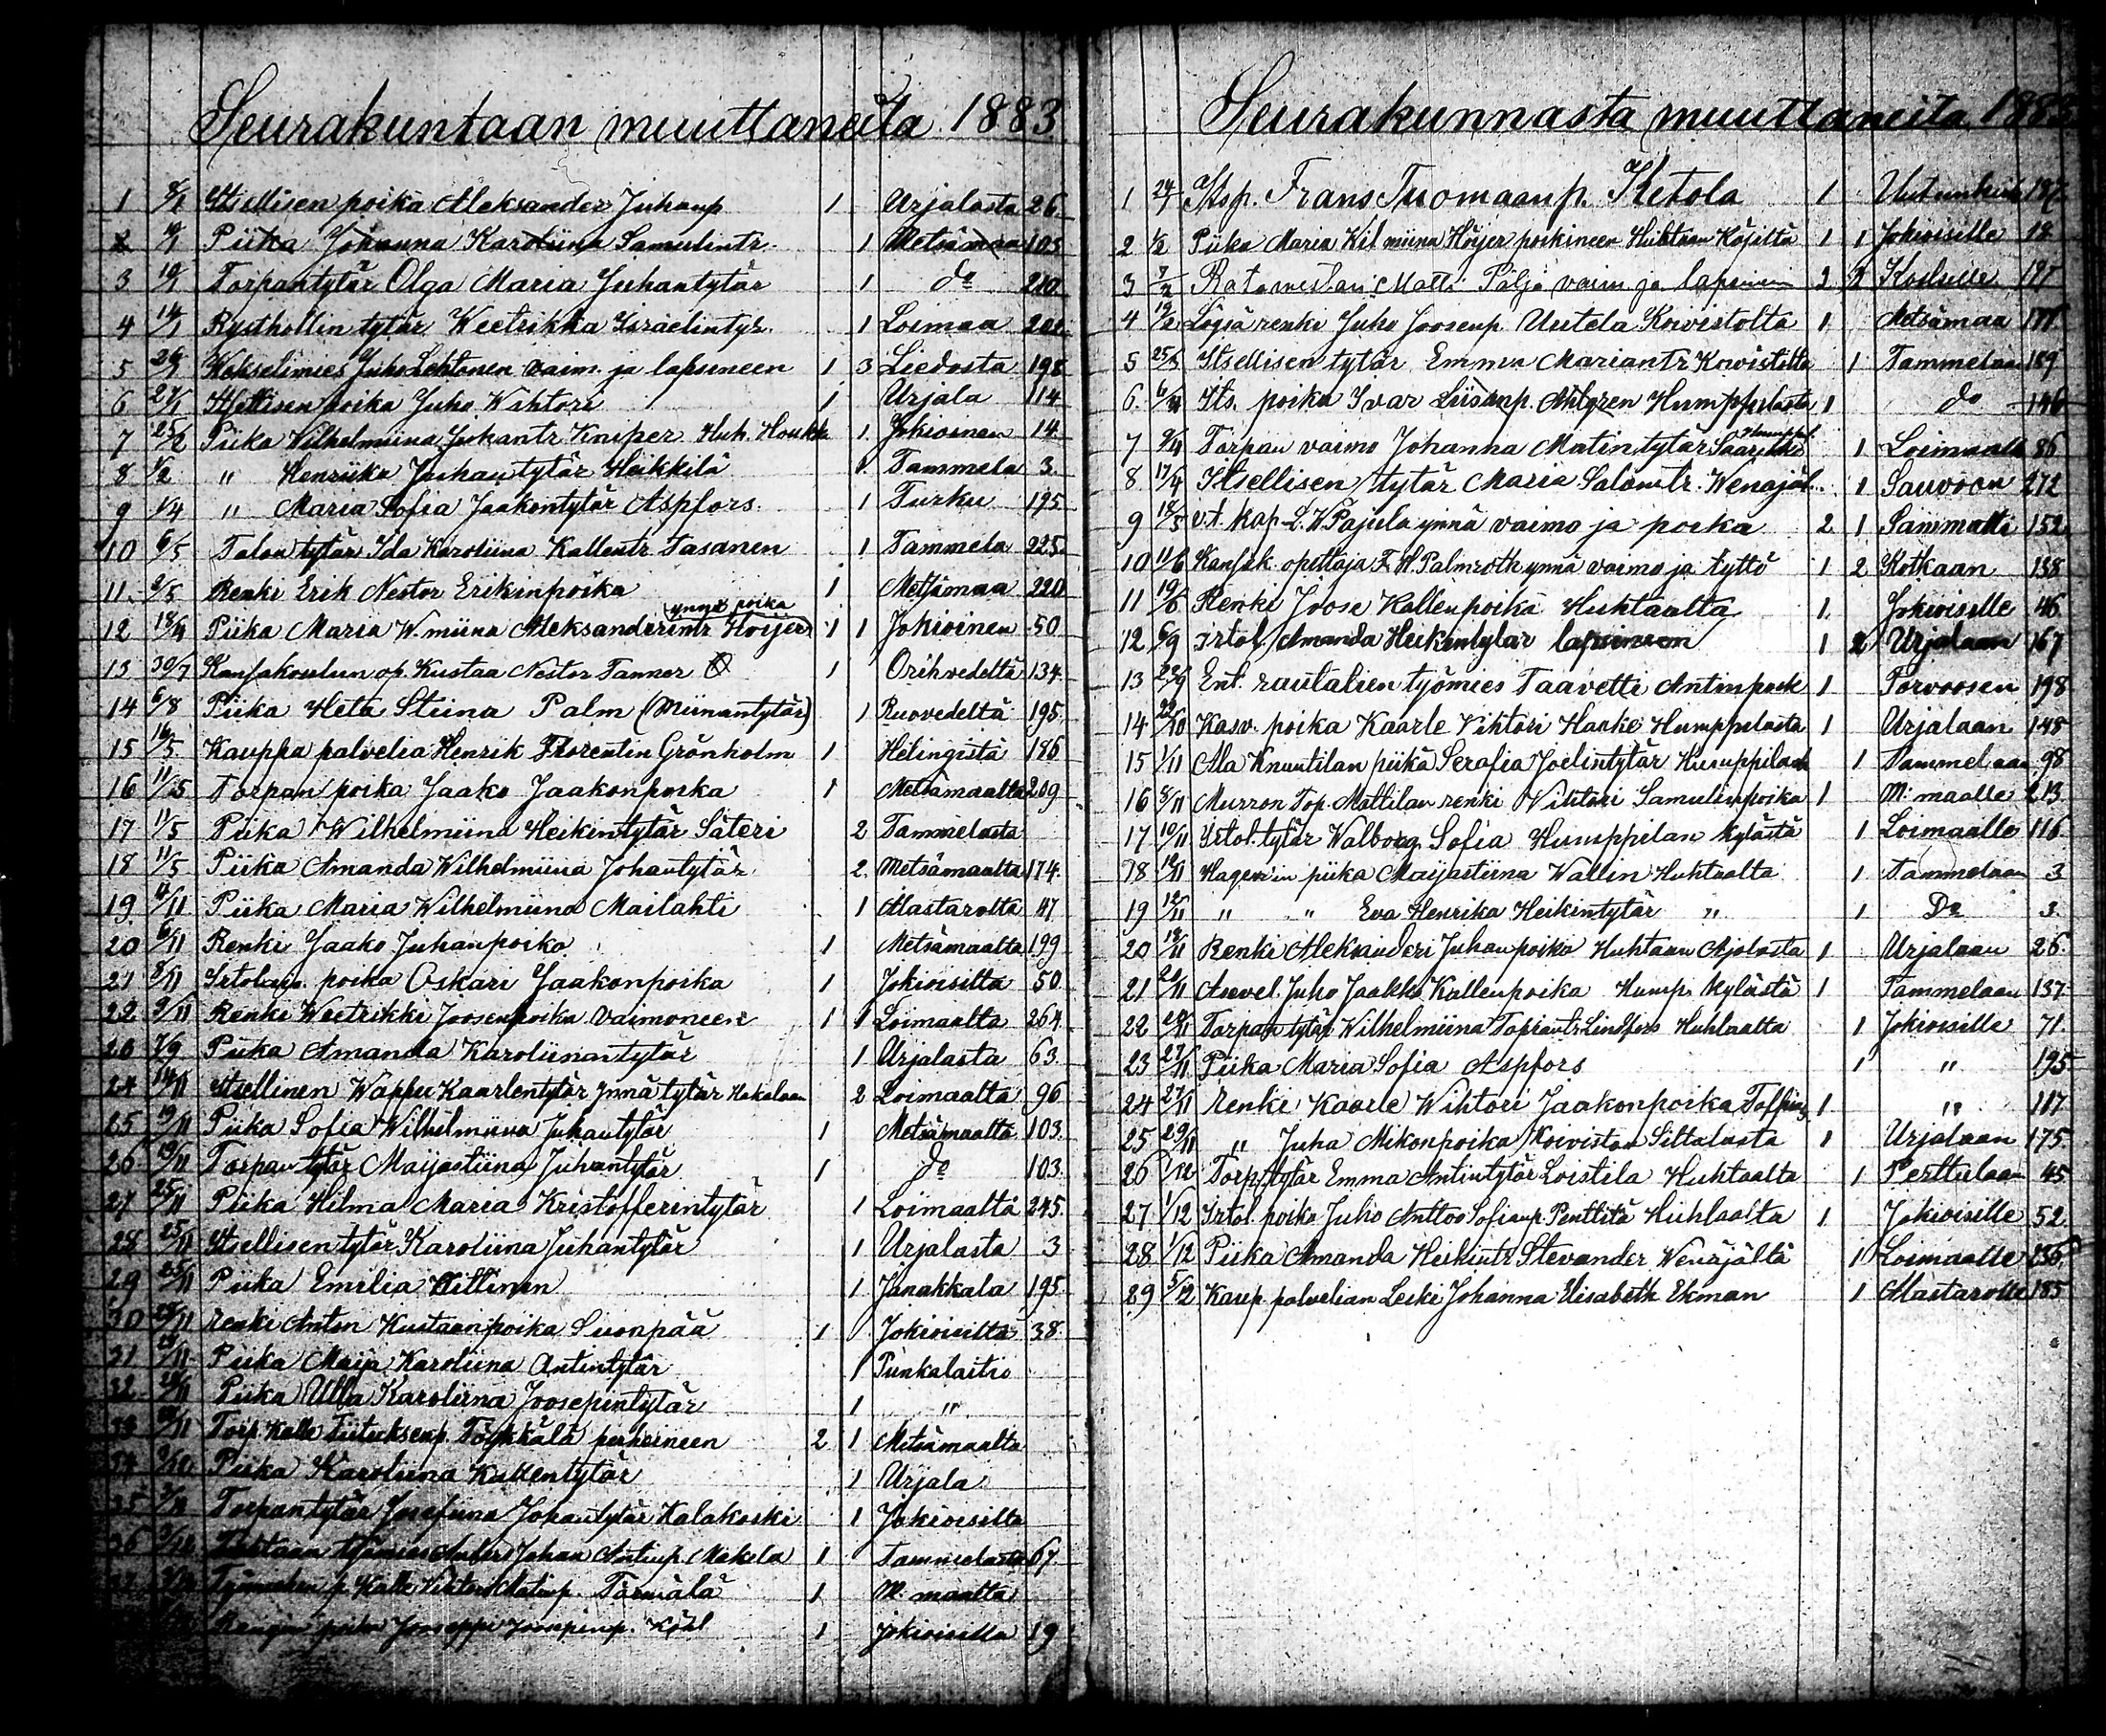 Seurakuntaan muuttaneita 1883
1 8/1 Itsellisen poika Aleksander Juhanp 1 Urjalasta 26
2 10/1 Piika Johanna Karoliina Samulintr. 1 Metsämaa 105
3 10/1 Torpantytär Olga Maria Juhantytär 1 do 210
4 14/1 Rusthollin tytär Weetrikka Israelintyt. 1 Loimaa
5 Juho Lehtonen vaim. ja lapsineen 1 3 Liedosta 198
6 27/1 Itsellisen poika Juho Wihtori 1 Urjala 114
7 25/2 Piika Wilhelmiina Juhantr Kniper Huh. 1 Jokioinen 14.
8 1/2 " Henriika Juhantytär Heikkilä 1 Tammela 3.
9 1/4 " Maria Sofia Jaakontytär Aspfors. 1 Turku 195
10 6/5 Talon tytär Ida Karoliina Kallentr. Tasanen 1 Tammela 225
11. 2/5 Renki Erik Nestor Erikinpoika 1 Metsämaa 220
12 18/4 Piika Maria W.miina Aleksanderintr Höijer ynnä poika 1 1 Jokioinen 50
13 30/7 Kansakoulun op. Kustaa Nestor Tanner 1 Orihvedeltä 134
14 6/8 Piika Heta Stiina Palm (Miinantytär) 1 Ruovedeltä 195
15 16/5 Kauppa palvelia Henrik Florentin Grönholm 1 Helsingistä 186
16 11/5 Torpan poika Jaako Jaakonpoika 1 Metsämaalta 209
17 11/5 Piika Wilhelmiina Heikintytär Säteri 2 Tammelasta
18 11/5 Piika Amanda Wilhelmiina Johantytär 2. Metsämaalta 174.
19. 4/11 Piika Maria Wilhelmiina Mailahti 1 Alastarolta 47
20 6/11 Renki Jaako Juhanpoika 1 Metsämaalta 199
21 8/11 poika Oskari Jaakonpoika 1 Jokioisilta 50
22 9/11 Renki Weetrikki Joosenpoika vaimoneen 1 1 Loimaalta 264
7/9 Piika Amanda Karoliinantytär 1 Urjalasta 63.
24 14/11 Itsellinen Wappu Kaarlentytär ynnä tytär 2 Loimaalta 96
25 19/11 Piika Sofia Wilhelmiina Juhantytär 1 Metsämaalta 103.
26 19/11 Torpan tytär Maijastiina Juhantytär 1 do 103
27 25/11 Piika Hilma Maria Kristofferintytär 1 Loimaalta 245.
28 25/11 Itsellisen tytär Karoliina Juhantytär 1 Urjalasta 3
29 25/11 Piika Emilia 1 Janakkala 195
30 Renki Anton Kustaanpoika Suonpää 1 Jokioisilta 38.
31 Piika Maija Karoliina Antintytär 1 Punkalaitio
32 Piika Ulla Karoliina Joosepintytär 1 "
33 Torp. Kalle perheineen 2 1 Metsämaalta
34 Piika Karoliina Kallentytär 1 Urjala
35 Torpantytär Josefiina Johantytär Kalakoski 1 Jokioisilta
36 Johan Antinp. Mäkelä 1 Tammelasta 67
Kalle Törmälä 1 M. maalta
poika Jooseppi Joosepinp. 1 Jokioisilta 19
Seurakunnasta muuttaneita 1883
1 Frans Tuomaanp. Ketola 1 187
2 1/2 Piika Maria Wilmiina Höijer poikineen Huhtaan 1 1 Jokioisille 18
3 7/2 Matti Paljo vaim. ja lapsineen
4 renki Juho Joosenp. Uutela Koivistolta 1 Metsämaa
5 Itsellisen tytär Emma Mariantr Koivistolta 1 Tammelaan 189
6. Its. poika Ivar Liisanp. Ahlgren Humppilasta 1 do 146
7 9/4 Torpan vaimo Johanna Matintytär 1 Loimaalle 86
8. 17/4 Itsellisen tytär Maria Salomtr. Wenäjäl. 1 Sauvoon 272
9 18/5 v.t. kap. L. W. Pajula ynnä vaimo ja poika 2 1 Sammatti 152
10 11/6 Kansak. opettaja F. H. Palmroth ynnä vaimo ja tyttö 1 2 Kotkaan 138
11 19/6 Renki Joose Kallenpoika Huhtaalta 1. Jokioisille 46
12 6/9 Irtol. Amanda Heikintytär lapsineen 1 2 Urjalaan 167
13 22/9 Ent. rautatien työmies Taavetti Antinpoik 1 Porvoosen 198
14 22/10 Kasv. poika Kaarle Vihtori Hanke Humppilasta 1 Urjalaan 148
15 1/11 Ala Knuutilan piika Serafia Joelintytär Humppilasta 1 Tammelaan 98
16 8/11 Murron Torp. Mattilan renki Vihtori Samulinpoika 1 M: maalle 213
17 10/11 Irtol. tytär Walborg Sofia Humppilan kylästä 1 Loimaalle 116
18 12/11 piika Maijastiina Wallin Huhtaalta 1 Tammelaan 3
19 12/11 " " Eva Henrika Heikintytär " 1 Do 3.
20 12/11 Renki Aleksanderi Juhanpoika Huhtaan Ajolasta 1 Urjalaan 26.
21 20/11 Juho Jaakko Kallenpoika Hump. kylästä 1 Tammelaan 137
22 20/11 Torpan tytär Wilhelmiina Lindfors Huhtaalta 1 Jokioisille 71.
23 27/11 Piika Maria Sofia Aspfors 1 " 195
24 27/11 Renki Kaarle Wihtori Jaakonpoika 1 " 117
25 29/11 " Juha Mikonpoika Koiviston Siltalasta 1 Urjalaan 175
26 1/12 Torp. tytär Emma Antintytär Loistila Huhtaalta 1 Perttulaan 45
27 1/12 Irtol. poika Juho Anttoo Sofianp. Penttilä Huhtaalta 1 Jokioisille 52
28 1/12 Piika Amanda Heikintr Stevander Wenäjältä 1 Loimaalle 236
29 5/12 Kaup. palvelian Leski Johanna Elisabeth Ekman 1 Alastarolle 185